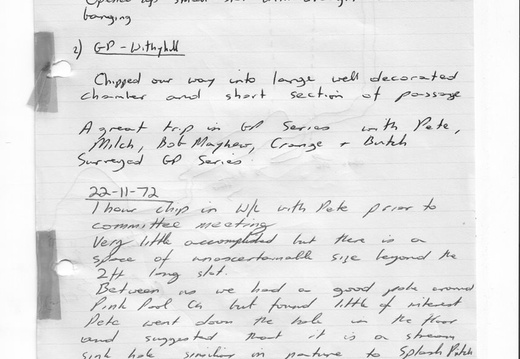 Opened up small slot with
banging
2) GP - Withyhill
Chipped our way into large well decorated
chamber and short section of passage
A great trip in GP Series with Pete,
Milch, Bob Mayhew, Crange + Butch
Surveyed GP Series.
22-11-72
1 hour chip in W/L with Pete prior to
committee meeting
Very little accomplished but there is a
space of unascertainable size beyond the
2ft long slot.
Between us we had a good poke around
Pink Pool Ch but found little of interest
Pete went down the hole in the floor
and suggested that it is a stream
sink hole similar in nature to Splash Pitch